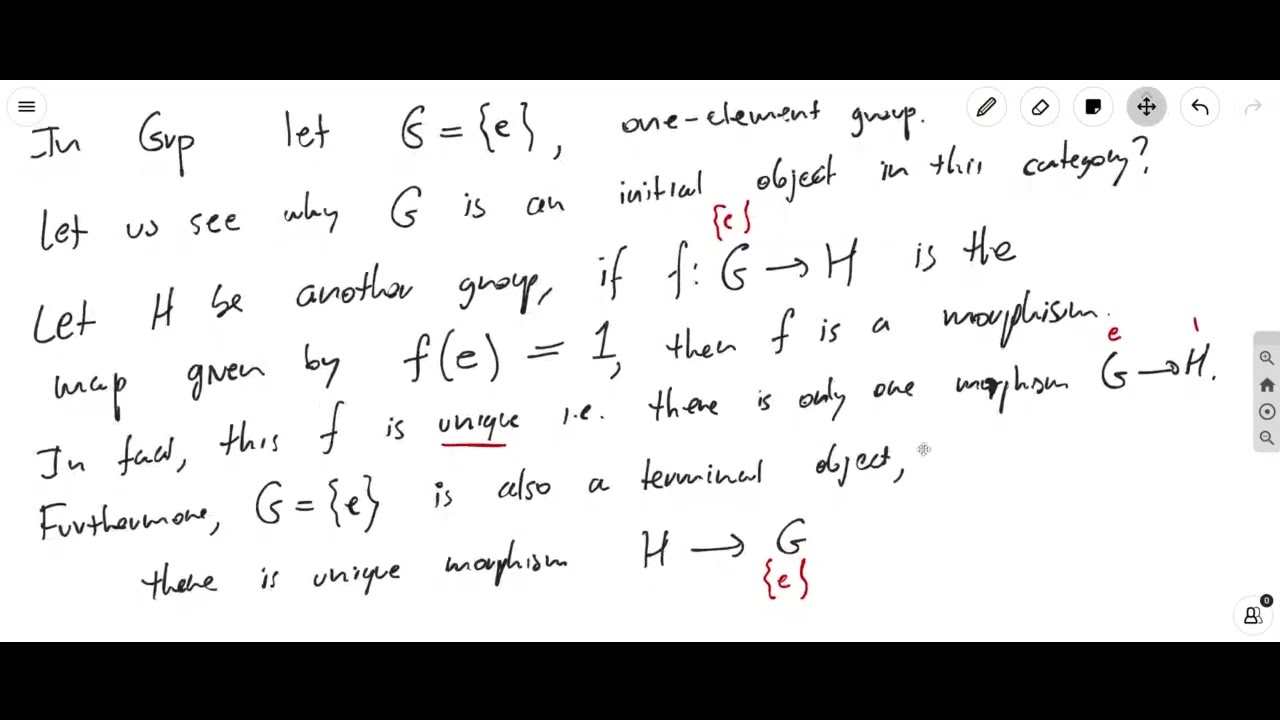 In Grp let G = {e}, one-element group.
Let us see why G is an initial object in this category?
{e}
Let H be another group, if f: G → H is the
map given by f(e) = 1, then f is a morphism.
e 1
In fact, this f is unique i.e. there is only one morphism G → H.
Furthermore, G = {e} is also a terminal object,
there is unique morphism H → G
{e}
0